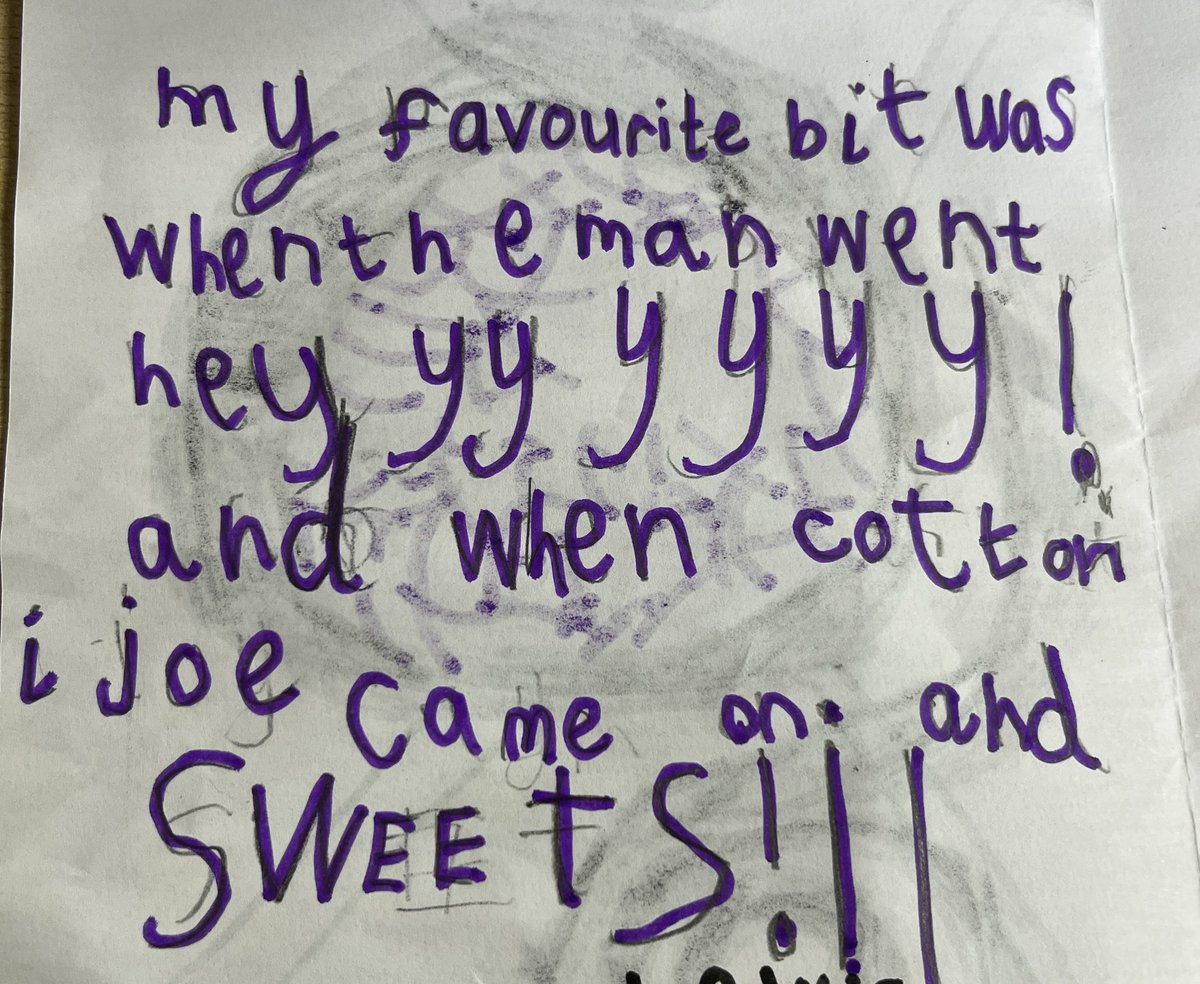 my favourite bit was
when the man went
heyyyyyyy!
and when cotton
i joe came on. and
SWEEtS!!!